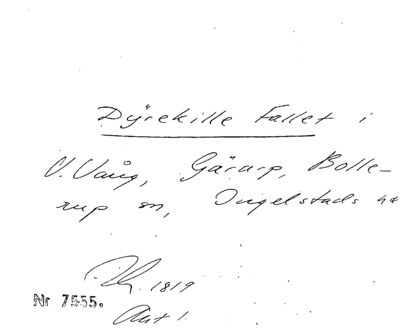 Dÿrekille Fallet i
V. Vång, Gärarp, Bolle-
rup sn, Ingelstads hd
1819
Nr 7555.
Akt 1.